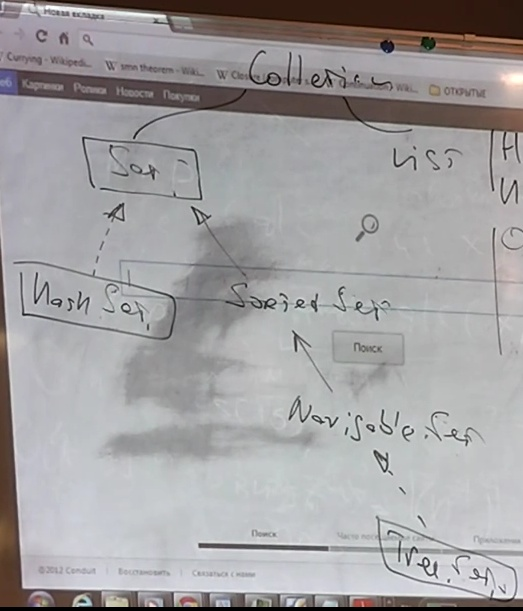 Новая вкладка
Currying - Wikipedi...
W smn theorem - Wiki...
ОТКРЫТЫЕ
Картинки Ролики Новости Покупки
Collection
Set
List
Hash Set
Sorted Set
Поиск
Navigable Set
Tree Set
Поиск
©2012 Conduit | Восстановить | Связаться с нами